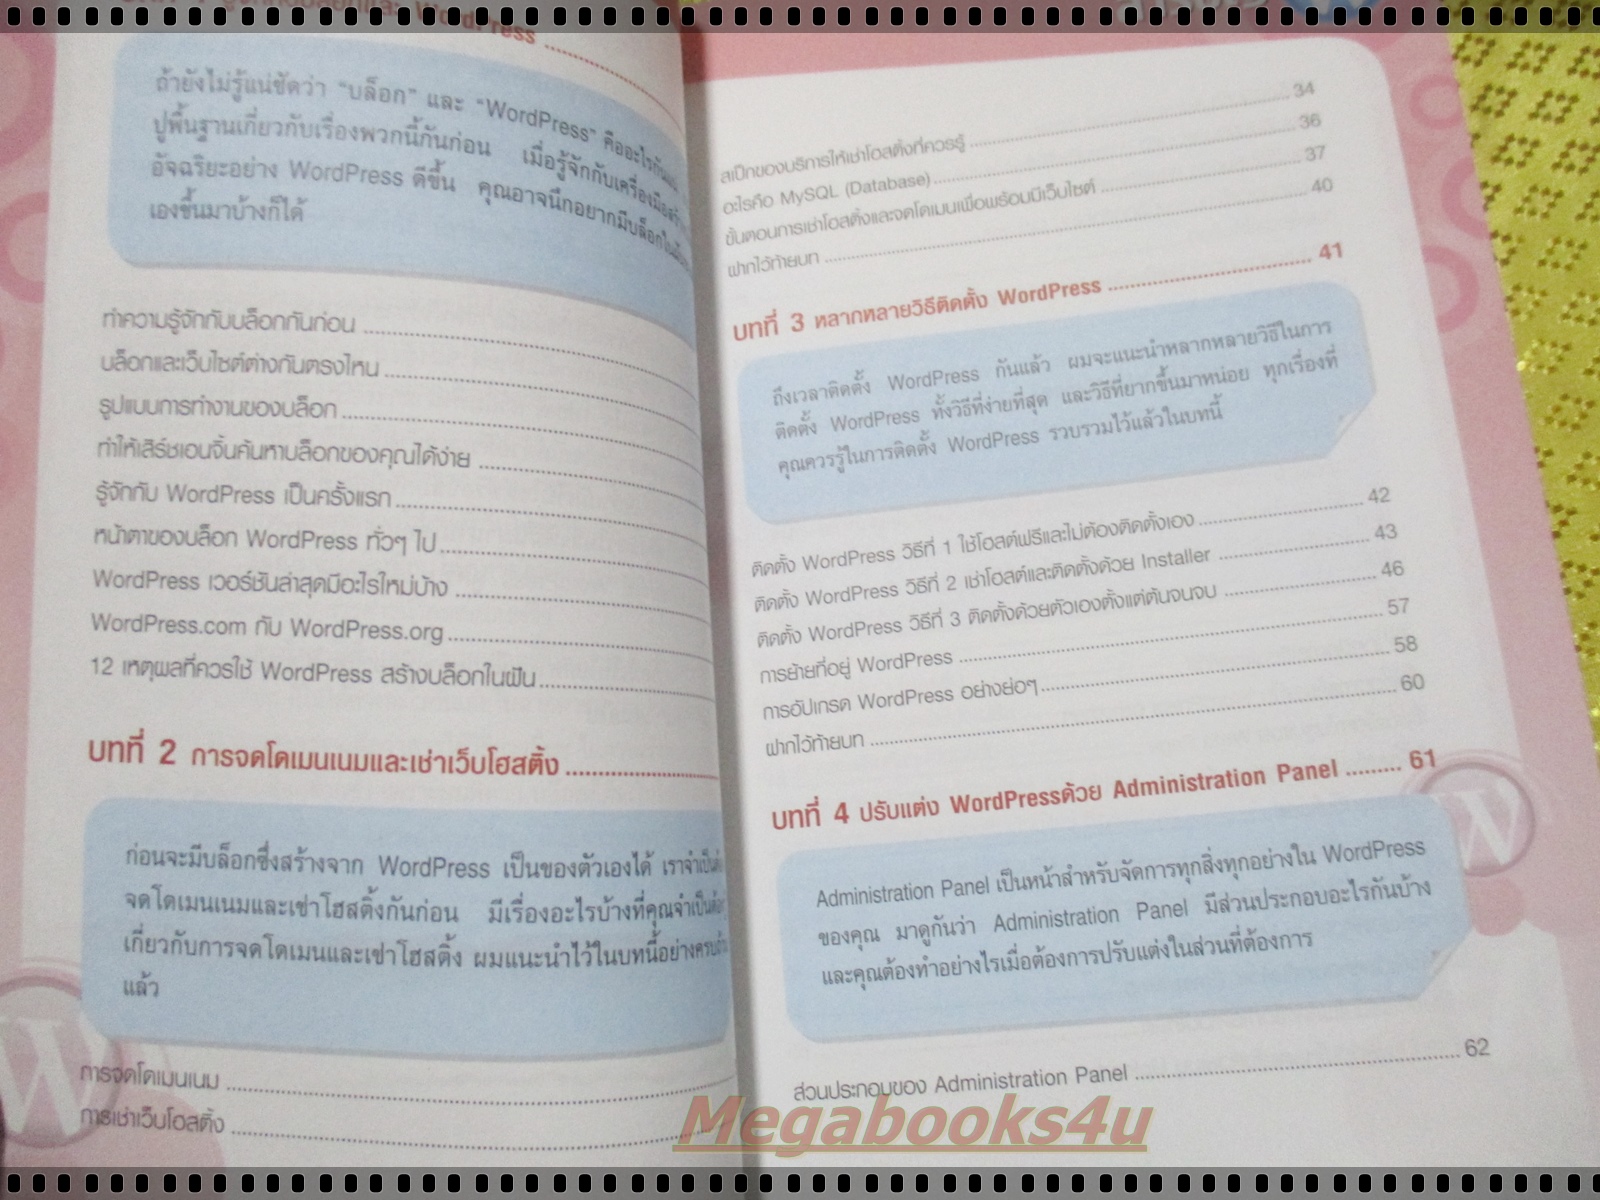 WordPress
ถ้ายังไม่รู้แน่ชัดว่า “บล็อก” และ “WordPress” คืออะไรกันแน่
ปูพื้นฐานเกี่ยวกับเรื่องพวกนี้กันก่อน เมื่อรู้จักกับเครื่องมือสร้าง
อัจฉริยะอย่าง WordPress ดีขึ้น คุณอาจนึกอยากมีบล็อก
เองขึ้นมาบ้างก็ได้
ทำความรู้จักกับบล็อกกันก่อน
บล็อกและเว็บไซต์ต่างกันตรงไหน
รูปแบบการทำงานของบล็อก
ทำให้เสิร์ชเอนจิ้นค้นหาบล็อกของคุณได้ง่าย
รู้จักกับ WordPress เป็นครั้งแรก
หน้าตาของบล็อก WordPress ทั่วๆ ไป
WordPress เวอร์ชันล่าสุดมีอะไรใหม่บ้าง
WordPress.com กับ WordPress.org
12 เหตุผลที่ควรใช้ WordPress สร้างบล็อกในฝัน
บทที่ 2 การจดโดเมนเนมและเช่าเว็บโฮสติ้ง
ก่อนจะมีบล็อกซึ่งสร้างจาก WordPress เป็นของตัวเองได้
จดโดเมนเนมและเช่าโฮสติ้งกันก่อน มีเรื่องอะไรบ้างที่คุณจำเป็นต้อง
เกี่ยวกับการจดโดเมนและเช่าโฮสติ้ง ผมแนะนำไว้ในบทนี้อย่างครบถ้วน
แล้ว
การจดโดเมนเนม
การเช่าเว็บโฮสติ้ง
สเป็กของบริการให้เช่าโฮสติ้งที่ควรรู้ 34
อะไรคือ MySQL (Database) 36
ขั้นตอนการเช่าโฮสติ้งและจดโดเมนเพื่อพร้อมมีเว็บไซต์ 37
ฝากไว้ท้ายบท 40
บทที่ 3 หลากหลายวิธีติดตั้ง WordPress 41
ถึงเวลาติดตั้ง WordPress กันแล้ว ผมจะแนะนำหลากหลายวิธีในการ
ติดตั้ง WordPress ทั้งวิธีที่ง่ายที่สุด และวิธีที่ยากขึ้นมาหน่อย ทุกเรื่องที่
คุณควรรู้ในการติดตั้ง WordPress รวบรวมไว้แล้วในบทนี้
ติดตั้ง WordPress วิธีที่ 1 ใช้โฮสต์ฟรีและไม่ต้องติดตั้งเอง 42
ติดตั้ง WordPress วิธีที่ 2 เช่าโฮสต์และติดตั้งด้วย Installer 43
ติดตั้ง WordPress วิธีที่ 3 ติดตั้งด้วยตัวเองตั้งแต่ต้นจนจบ 46
การย้ายที่อยู่ WordPress 57
การอัปเกรด WordPress อย่างย่อๆ 58
ฝากไว้ท้ายบท 60
บทที่ 4 ปรับแต่ง WordPressด้วย Administration Panel 61
Administration Panel เป็นหน้าสำหรับจัดการทุกสิ่งทุกอย่างใน WordPress
ของคุณ มาดูกันว่า Administration Panel มีส่วนประกอบอะไรกันบ้าง
และคุณต้องทำอย่างไรเมื่อต้องการปรับแต่งในส่วนที่ต้องการ
ส่วนประกอบของ Administration Panel 62
Megabooks4u